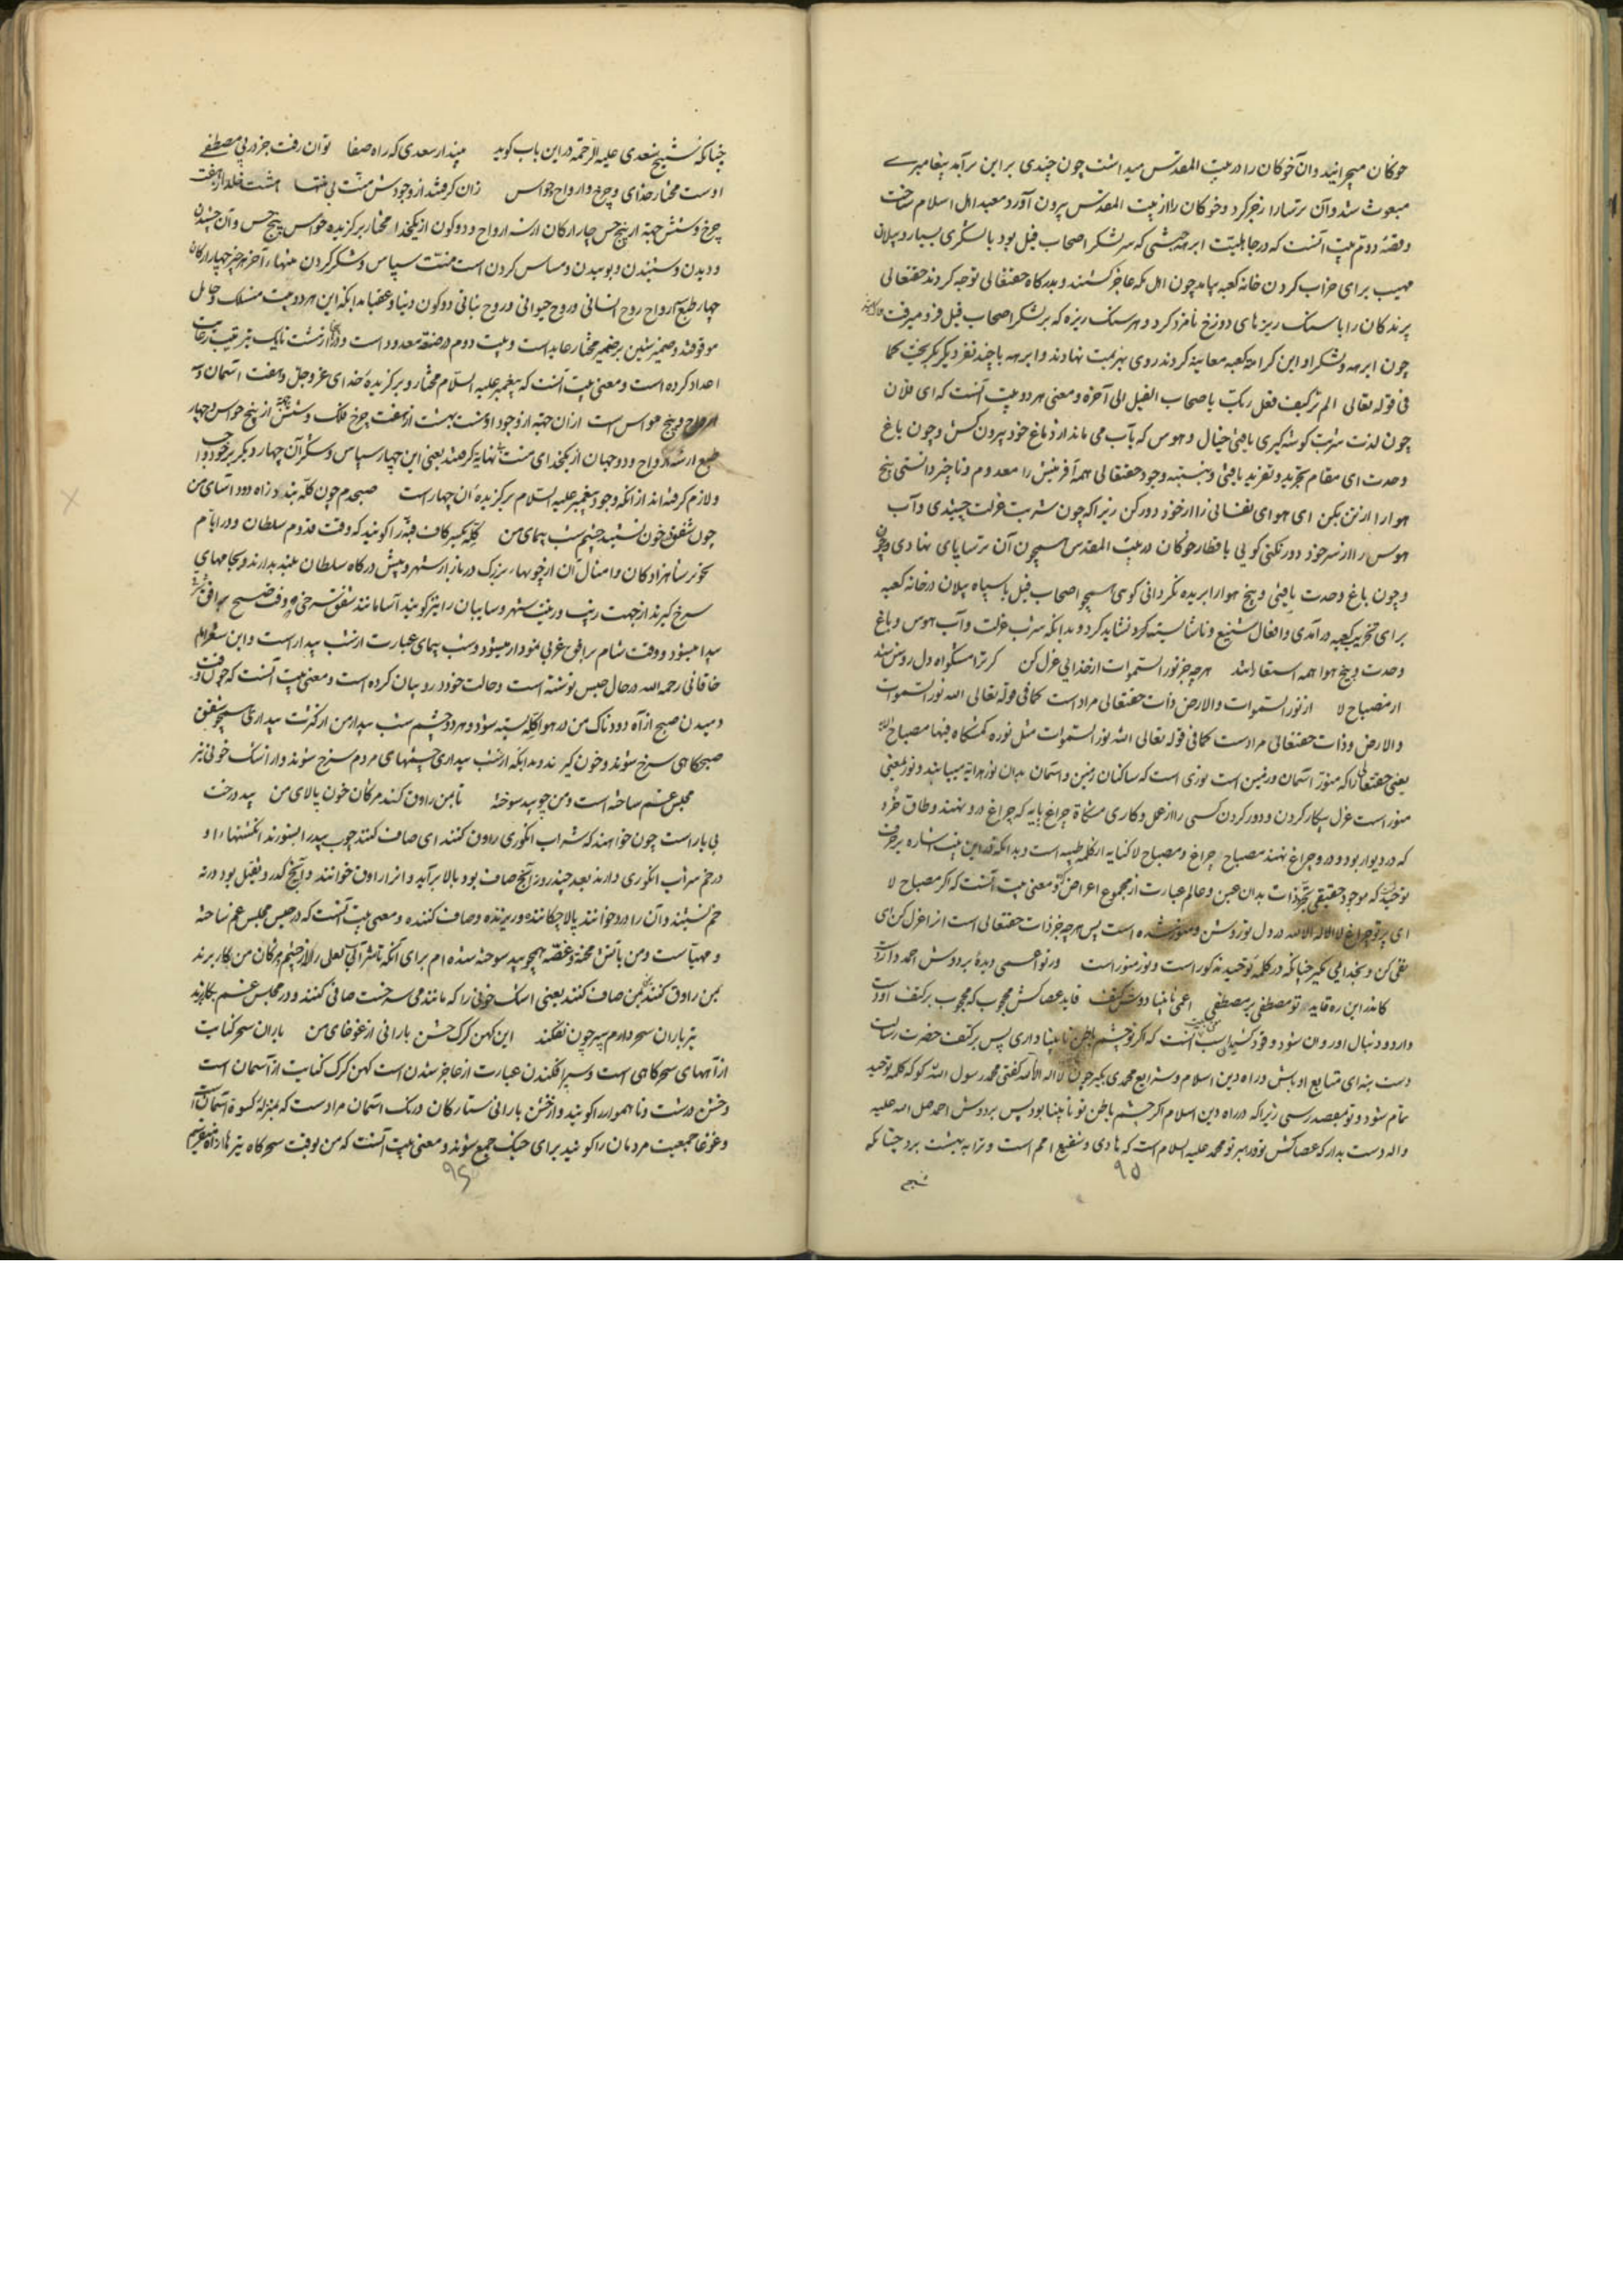 خوکان میچرانید و آن خوکان را در بیت المقدس میداشت چون چندی بر این برآمد پیغامبری
مبعوث شد و آن ترسا را زجر کرد و خوکان را از بیت المقدس بیرون آورد و معبد اهل اسلام ساخت
و قصه دوم بیت آنست که در جاهلیت ابرهه حبشی که سر لشکر اصحاب فیل بود با لشکری بسیار و پیلان
مهیب برای خراب کردن خانه کعبه بیامد چون اهل مکه عاجز گشتند و بدرگاه حقتعالی توجه کردند حقتعالی
پرندگان را با سنگ ریزهای دوزخ نامزد کرد و هر سنگ ریزه که بر لشکر اصحاب فیل فرو میرفت
چون ابرهه و لشکر او این کرامة کعبه معاینه کردند روی بهزیمت نهادند و ابرهه با چند نفر دیگر بگریخت کما
فی قوله تعالی الم تر کیف فعل ربک باصحاب الفیل الی آخره و معنی هر دو بیت آنست که ای فلان
چون لذت شربت گوشه گیری یافتی خیال و هوس که بآب می ماند از دماغ خود بیرون کش و چون باغ
وحدت ای مقام تجرید و تفرید یافتی و بنسبت وجود حقتعالی همه آفرینش را معدوم و ناچیز دانستی بیخ
هوا را از بن بکن ای هوای نفسانی را از خود دور کن زیرا که چون شربت عزلت چشیدی و آب
هوس را از سر خود دور نکنی گویی با قطار خوکان در بیت المقدس همچون آن ترسا پای نهادی
و چون باغ وحدت یافتی و بیخ هوا را بریده نگردانی گوئی همچو اصحاب فیل با سپاه پیلان در خانه کعبه
برای تخریب کعبه درآمدی و افعال شنیع و ناشایسته کرد نشاید کرد و بدانکه شرب عزلت و آب هوس و باغ
وحدت و بیخ هوا همه استعاراتند هر چه جز نور السموات از خدایی عزل کن گر ترا مشکوة دل روشن شد
از مصباح لا از نور السموات والارض ذات حقتعالی مراد است کما فی قوله تعالی الله نور السموات
والارض و ذات حقتعالی مرادست کما فی قوله تعالی الله نور السموات مثل نوره کمشکاة فیها مصباح
یعنی حقتعالی را که منور آسمان و زمین است نوری است که ساکنان زمین و آسمان بدان نور هدایه مییابند و نور بمعنی
منور است عزل بیکار کردن و دور کردن کسی را از عمل و کاری مشکاة چراغ پایه که چراغ درو نهند و طاق خرد
که در دیوار بود و درو چراغ نهند مصباح چراغ و مصباح لا کنایه از کلمه طیبه است و بدانکه در این بیت اشاره بر حرف
توحید که موجود حقیقی بجز ذات بدان عین و عالم عبارت از مجموع اعراض و معنی بیت آنست که اگر مصباح لا
ای پرتو چراغ لا اله الا الله در دل تو روشن و منور شده است پس هر چه جز ذات حقتعالی است انرا عزل کن ای
نفی کن و بخدایی مگیر چنانکه در کلمه توحید مذکور است و نور منور است ور تو اعمی دیده بر دوش احمد دار دست
کاندر این ره قاید تو مصطفی به مصطفی اعمی نابینا دوش کتف قاید عصاکش محجوب که محجوب بر کتف او دست
دارد و دنبال او روان شود و قود کشیدن اسب است که اگر تو چشم باطن نابینا داری پس بر کتف حضرت رسالت
دست بنه ای متابع او باش در راه دین اسلام و شرایع محمدی بگیر چون لا اله الا الله گفتی محمد رسول الله گو که کلمه توحید
تمام شود و تو بمقصد رسی زیرا که در راه دین اسلام اگر چشم باطن تو نابینا بود پس بر دوش احمد صلی الله علیه
و اله دست بدار که عصاکش تو و رهبر تو محمد علیه السلام است که هادی و شفیع امم است و ترا به بهشت برد چنانکه
شیخ
۹۵
چنانکه شیخ سعدی علیه الرحمة در این باب گوید مپندار سعدی که راه صفا توان رفت جز در پی مصطفی
اوست مختار خدای و چرخ و ارواح و حواس زان گرفتند از وجودش منت بی منتها هشت خلد از هفت
چرخ و شش جهة از پنج حس چار ارکان از سه ارواح و دو کون از یکخدا مختار برگزیده حواس پنج حس و آن چشیدن
و دیدن و شنیدن و بوییدن و مساس کردن است منت سپاس و شکر کردن منتها آخر هر چیز چهار ارکان
چهار طبع ارواح روح انسانی و روح حیوانی و روح نباتی دو کون دنیا و عقبا بدانکه این هر دو بیت منسلک و حامل
موقوفند و ضمیر شین بر ضمیر مختار عاید است و بیت دوم در صنعة معدود است و در از هشت تا یک بترتیب رعایت
اعداد کرده است و معنی بیت آنست که پیغمبر علیه السلام مختار و برگزیده خدای عز و جل و هفت آسمان و سه
ارواح و پنج حواس است از ان جهة از وجود او هشت بهشت از هفت چرخ فلک و شش جهة از پنج حواس و چهار
طبع از سه ارواح و دو جهان از یکخدای منت بی نهایه گرفتند یعنی این چهار سپاس و شکر آن چهار دیگر بر خود
و لازم گرفته اند از آنکه وجود پیغمبر علیه السلام برگزیده آن چهار است صبحدم چون کله بندد آه دود آسای من
چون شفق در خون نشیند چشم شب پیمای من کله بکسر کاف قبه را گویند که وقت قدوم سلطان و در ایام
تحویل شاهزادگان و امثال آن از چوبهای بزرگ در بازار شهر و پیش درگاه سلطان بلند بدارند و بجامهای
سرخ گیرند از جهت زیب و زینت شهر و سایبان را نیز گویند آسا مانند شفق سرخی که وقت صبح بر افق
پیدا میشود و وقت شام بر افق غربی نمودار میشود و شب پیمای عبارت از شب بیدار است و این شعر را
خاقانی رحمه الله در حال حبس نوشته است و حالت خود درو بیان کرده است و معنی بیت آنست که چون وقت
دمیدن صبح از آه دود ناک من در هوا کله بسته شود و هر دو چشم شب بیدار من از کثرت بیداری همچو شفق
صبحگاهی سرخ شوند و خون گیرند و بدانکه از شب بیداری چشمهای مردم سرخ شوند و از اشک خونی نیز
مجلس غم ساخته است و من چو بید سوخته تا بمن راوق کند مژگان خون پالای من بید درخت
بی بار است چون خواهند که شراب انگوری راوق کنند ای صاف کنند چوب بید را بسوزند انگشتها را و
در خم شراب انگوری دارند بعد چند روز آنچ صاف بود بالا برآید و انرا راوق خوانند و آنچ کدر و ثقیل بود در ته
خم نشیند و آن را درد خوانند پالا چکاننده و ریزنده و صاف کننده و معنی بیت آنست که در حبس مجلس غم ساخته
و مهیاست و من باتش محنة و غصه همچو بید سوخته شده ام برای آنکه تا شراب لعلی را از چشم مژگان من بکار برند
بمن راوق کنند بمن صاف کنند یعنی اشک خونی را که مانند می سرخست صافی کنند و در مجلس غم بکار برند
تیر باران سحر دارم سپر چون نفکند این کهن گرگ خشن بارانی از غوغای من باران سحر کنایت
از آههای سحرگاهی است و سپر افکندن عبارت از عاجز شدن است کهن گرگ کنایت از آسمان است
و خشن درشت و ناهموار را گویند و از خشن بارانی ستارگان و رنگ آسمان مرادست که بمنزله کسوة آسمان است
و غوغا جمعیت مردمان را گویند برای جنگ جمع شوند و معنی بیت آنست که من بوقت سحرگاه تیرها
۹۶